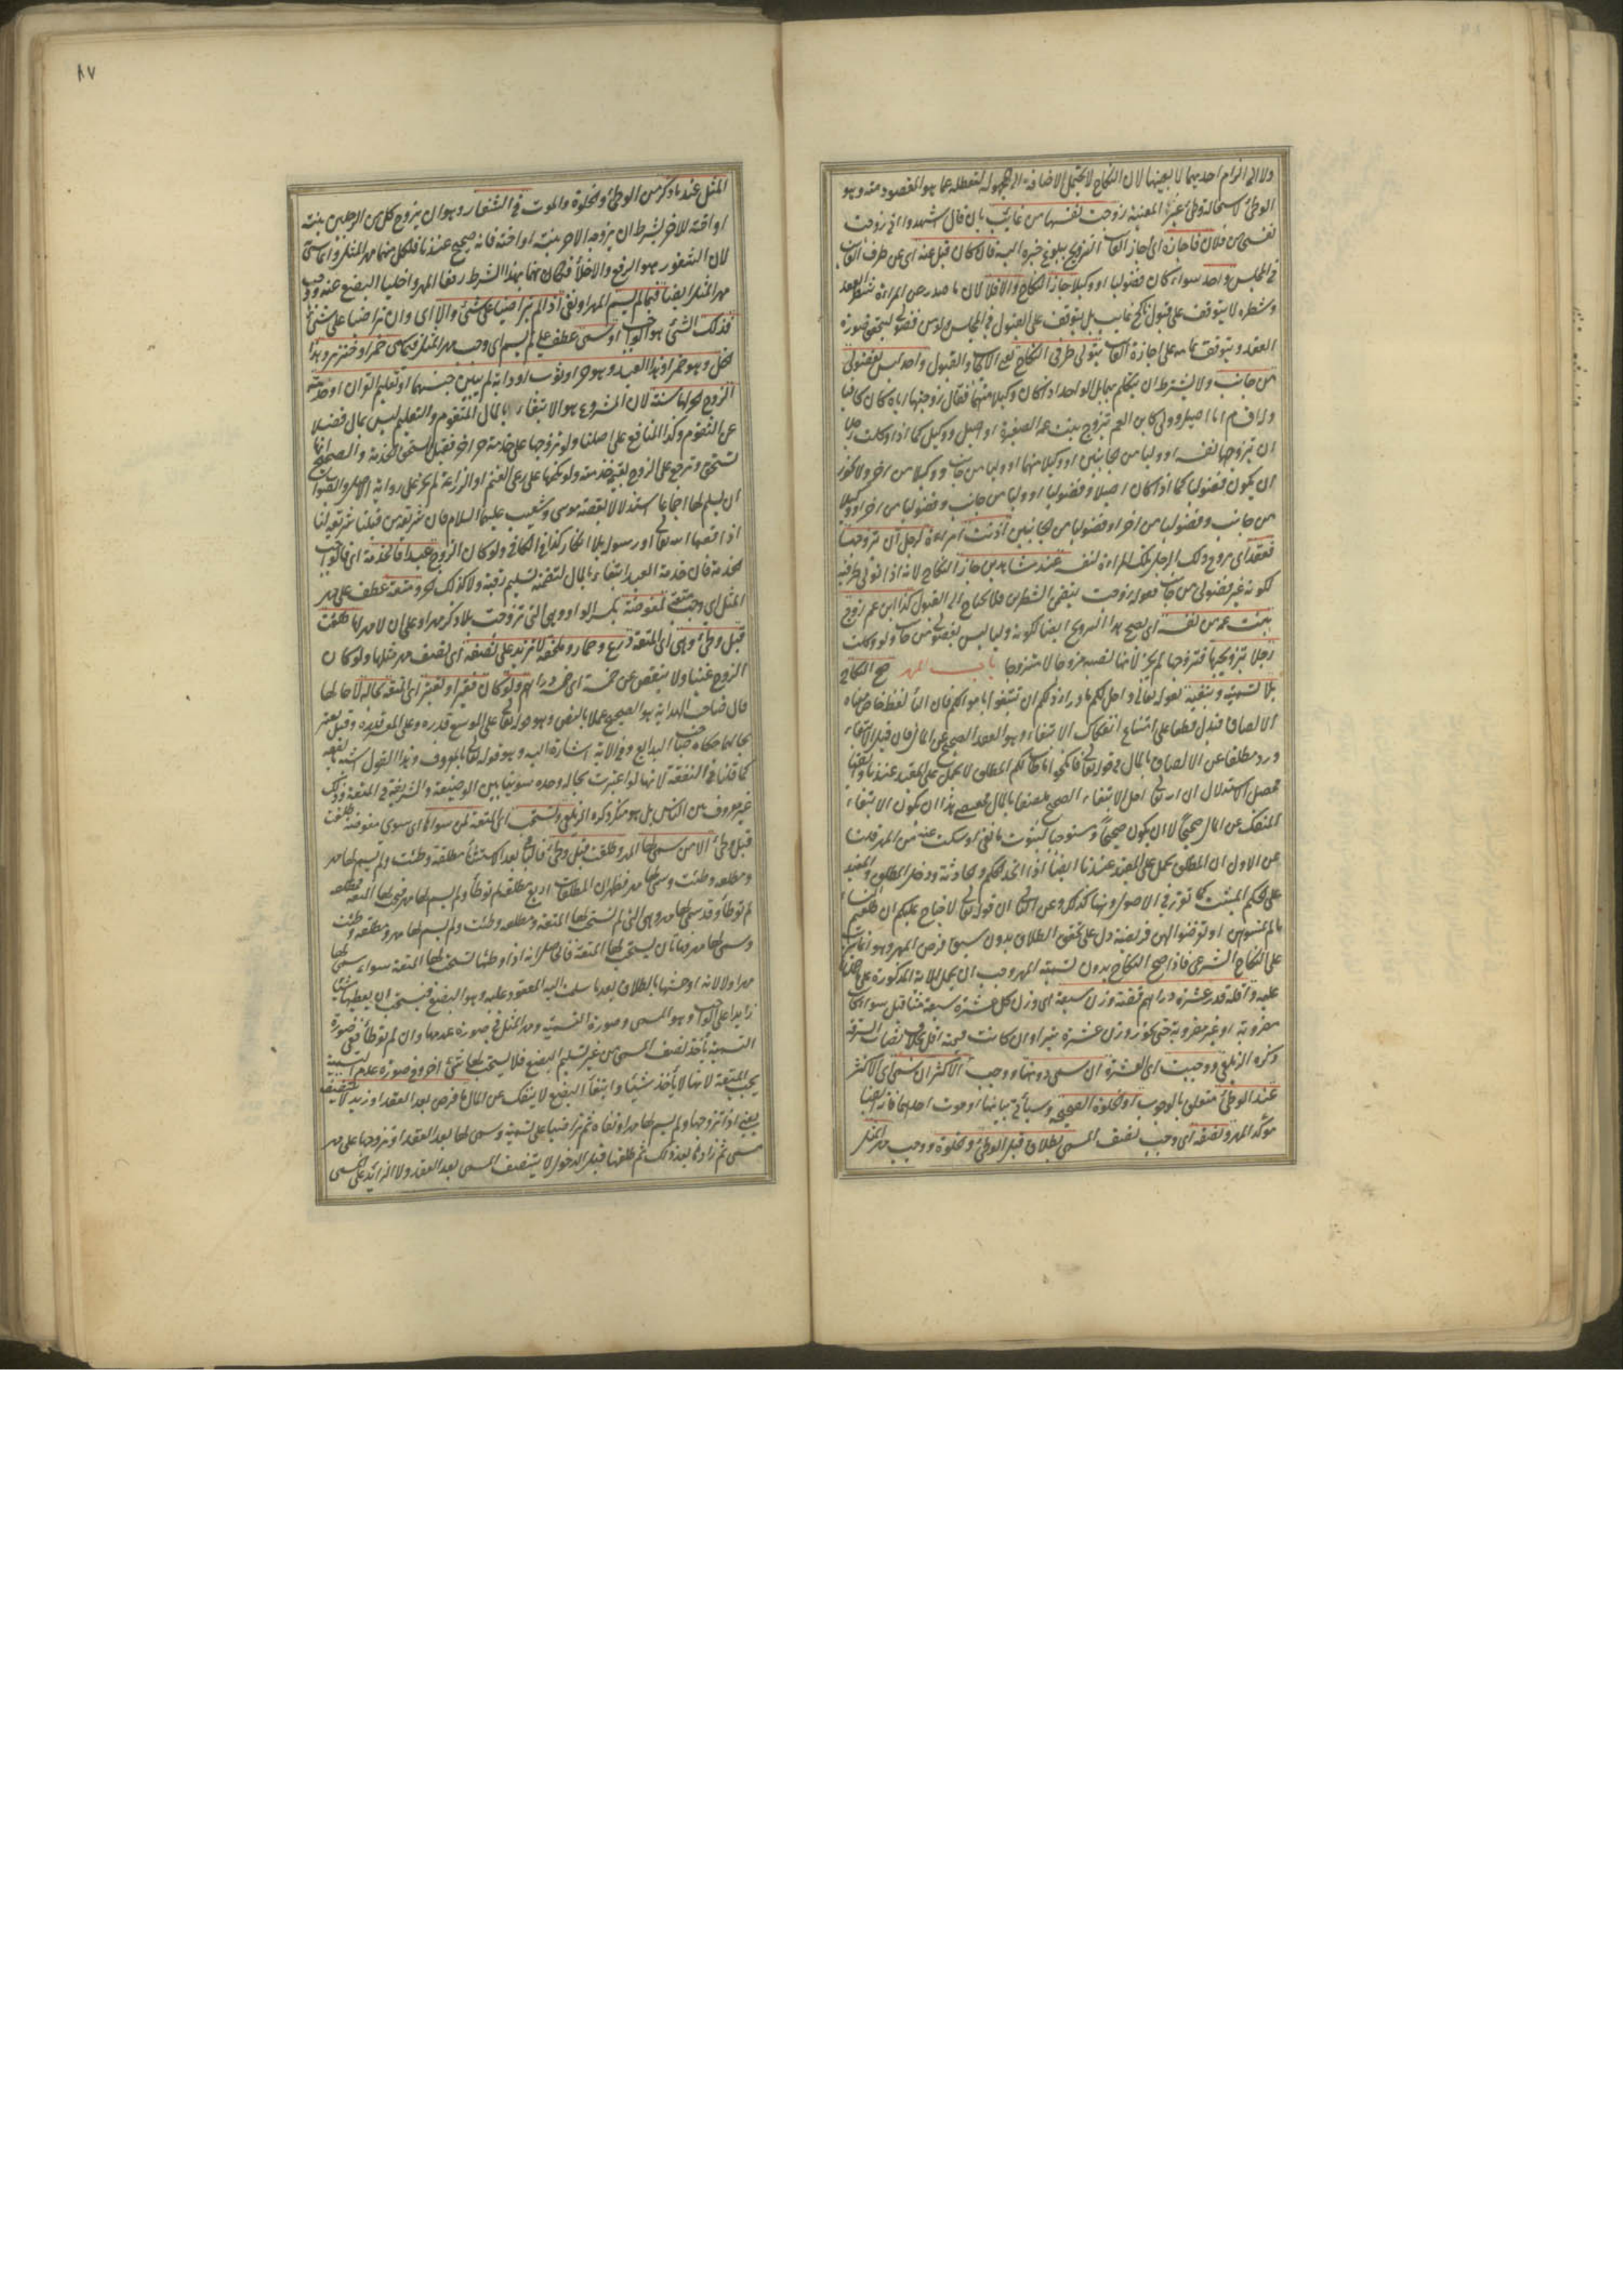 ولا الى الزام احديهما لا بعينها لان النكاح لا يحتمل الاضافة الى المجهولة لتعطله عما هو المقصود منه وهو
الوطئ لاستحالة وطئ غير المعينة زوجت نفسها من غائب بان قال اشهدوا انى زوجت
نفسى من فلان فاجازه اى اجاز الغائب التزويج ببلوغ خبره اليه فان كان قبل عنه اى عن طرف الغائب
فى المجلس واحد سواء كان فضوليا او وكيلا جاز النكاح والا فلا لان ما صدر عن المراءة شطر العقد
وشطره لا يتوقف على قبول ناكح غايب بل يتوقف على القبول فى المجلس ولو من فضولى ليتحقق صورة
العقد ويتوقف تمامه على اجازة الغائب يتولى طرفى النكاح يعنى الايجاب والقبول واحد ليس بفضولى
من جانب ولا يشترط ان يتكلم بهما بل الواحد اذا كان وكيلا منهما فقال زوجتها اياه كان كافيا
وله اقسام اما اصيل وولى كابن العم تزوج بنت عمه الصغيرة او اصيل ووكيل كما اذا وكلت رجلا
ان يتزوجها لنفسه او وليا من الجانبين او وكيلا منهما او وليا من جانب ووكيلا من اخر ولا يجوز
ان يكون فضوليا كما اذا كان اصيلا وفضوليا او وليا من جانب وفضوليا من اخر او وكيلا
من جانب وفضوليا من اخر او فضوليا من الجانبين اذنت امراءة لرجل ان يتزوجها
فعقد اى تزوج ذلك الرجل تلك المراءة لنفسه عند شاهدين جاز النكاح لانه اذا تولى طرفيه
لكونه غير فضولى من جانب فقوله زوجت يتضمن الشطرين فلا يحتاج الى القبول كذا ابن عم زوج
بنت عمه من نفسه اى يصح هذا التزويج ايضا لكونه وليا ليس بفضولى من جانب ولو وكلت
رجلا بتزويجها فتزوجها لم يجز لانها نصبته مزوجا لا متزوجا باب المهر صح النكاح
بلا تسمية وبنفيه لقوله تعالى واحل لكم ما وراء ذلكم ان تبتغوا باموالكم فان الباء لفظ خاص معناه
الالصاق فيدل قطعا على امتناع انفكاك الابتغاء وهو العقد الصحيح عن المال فان قيل الابتغاء
ورد مطلقا عن الالصاق بالمال فى قوله تعالى فانكحوا ما طاب لكم المطلق لا يحمل على المقيد عندنا
محصل الاستدلال ان الله تعالى احل الابتغاء الصحيح ملصقا بالمال فمقتضى هذا ان يكون الابتغاء
المنفك عن المال صحيحا لا ان يكون صحيحا ومستوجبا لثبوت ما نفى او سكت عنه من المهر قلت
عن الاول ان المطلق يحمل على المقيد عندنا ايضا اذا اتحد الحكم والحادثة ودخل المطلق والمقيد
على الحكم المثبت كما تقرر فى الاصول وههنا كذلك وعن الثانى ان قوله تعالى لا جناح عليكم ان طلقتم النساء
ما لم تمسوهن او تفرضوا لهن فريضة دل على تحقق الطلاق بدون سبق فرض المهر وهو انما يترتب
على النكاح الشرعى فاذا صح النكاح بدون تسمية المهر وجب ان يحمل الاية المذكورة على
عليه واقله قدر عشرة دراهم فضة وزن سبعة اى وزن كل عشرة سبعة مثاقيل سواء كانت
مضروبة او غير مضروبة حتى يجوز وزن عشرة تبرا وان كانت قيمته اقل بخلاف نصاب السرقة
وكره الزيلعى ووجبت اى العشرة ان سمى دونها ووجب الاكثر ان سمى اى الاكثر
عند الوطئ متعلق بالوجوب او الخلوة الصحيحة وسيأتى بيانها او موت احدهما فانه ايضا
مؤكد المهر ونصفه اى وجب نصف المسمى بطلاق قبل الوطئ والخلوة ووجب مهر المثل
٨٧
المثل عند ما ذكر من الوطئ والخلوة والموت فى الشغار وهو ان يزوج كل من الرجلين بنته
او اخته للاخر بشرط ان يزوجه الاخر بنته او اخته فانه صحيح عندنا فلكل منهما مهر المثل وانما سمى
لان الشغور هو الرفع والاخلاء فكان بهما بهذا الشرط رفعا المهر واخليا البضع عنه ووجب
مهر المثل ايضا فيما لم يسم المهر او نفى اذا لم يتراضيا على شئ والا اى وان تراضيا على شئ
فذلك الشئ هو الواجب او سمى عطف على لم يسم اى وجب مهر المثل فيما سمى خمر او خنزير وهذا
الخل وهو خمر او هذا العبد وهو حر او ثوب او دابة لم يبين جنسهما او تعليم القران او خدمة
الزوج الحر لها سنة لان المشروع هو الابتغاء بالمال المتقوم والتعليم ليس بمال فضلا
عن التقوم وكذا المنافع على اصلنا ولو تزوجها على خدمة حر اخر فقيل تستحق الخدمة والصحيح انها لا
تستحق وترجع على الزوج بقيمة خدمته ولو نكحها على رعى الغنم او الزراعة لم يجز على رواية الاصل والصواب
ان يسلم لها اجماعا استدلالا بقصة موسى وشعيب عليهما السلام فان شريعة من قبلنا شريعة لنا
اذا قصها الله تعالى او رسوله بلا انكار كذا فى الكافى ولو كان الزوج عبدا فالخدمة اى فالواجب
الخدمة فان خدمة العبد ابتغاء بالمال لتضمنه تسليم رقبته ولا كذلك الحر ومتعة عطف على مهر
المثل اى وجب متعة لمفوضة بكسر الواو وهى التى تزوجت بلا ذكر مهر او على ان لا مهر لها طلقت
قبل وطئ وهى اى المتعة درع وخمار وملحفة لا تزيد على نصفه اى نصف مهر مثلها ولو كان
الزوج غنيا ولا ينقص عن خمسة اى خمسة دراهم ولو كان فقيرا وتعتبر اى المتعة بحاله لا حالها
قال صاحب الهداية هو الصحيح عملا بالنص وهو قوله تعالى على الموسع قدره وعلى المقتر قدره وقيل يعتبر
بحالهما حكاه صاحب البدايع وفى الاية اشارة اليه وهو قوله تعالى بالمعروف وهذا القول اشبه بالفقه
كما قلنا فى النفقة لانها لو اعتبرت بحاله وحده سوينا بين الوضيعة والشريفة فى المتعة وذلك
غير معروف بين الناس بل هو منكر ذكره الزيلعى وتستحب اى المتعة لمن سواها اى سوى مفوضة طلقت
قبل وطئ الا من سمى لها المهر وطلقت قبل وطئ فالباقى بعد الاستثناء مطلقة وطئت ولم يسم لها مهر
ومطلقة وطئت وسمى لها مهر فظهر ان المطلقات اربع مطلقة لم توطأ ولم يسم لها مهر فتجب لها المتعة ومطلقة
لم توطأ وقد سمى لها مهر وهى التى لم تستحب لها المتعة ومطلقة وطئت ولم يسم لها مهر ومطلقة وطئت
وسمى لها مهر فهاتان يستحب لها المتعة فالحاصل انه اذا وطئها تستحب لها المتعة سواء سمى لها
مهرا ولا لانه اوحشها بالطلاق بعد ما سلمت اليه المعقود عليه وهو البضع فيستحب ان يعطيها شيئا
زايدا على الواجب وهو المسمى وصورة التسمية ومهر المثل فى صورة عدمها وان لم توطأ ففى صورة
التسمية تأخذ نصف المسمى من غير تسليم البضع فلا يستحب لها شئ اخر وفى صورة عدم التسمية
يجب المتعة لانها لا يأخذ شيئا وابتغاء البضع لا ينفك عن المال ما فرض بعد العقد او زيد لا يتنصف
يعنى اذا تزوجها ولم يسم لها مهرا او نفاه ثم تراضيا على تسمية وسمى لها بعد العقد او تزوجها على مهر
مسمى ثم زادها بعد ذلك ثم طلقها قبل الدخول لا يتنصف المسمى بعد العقد ولا الزائد على المسمى